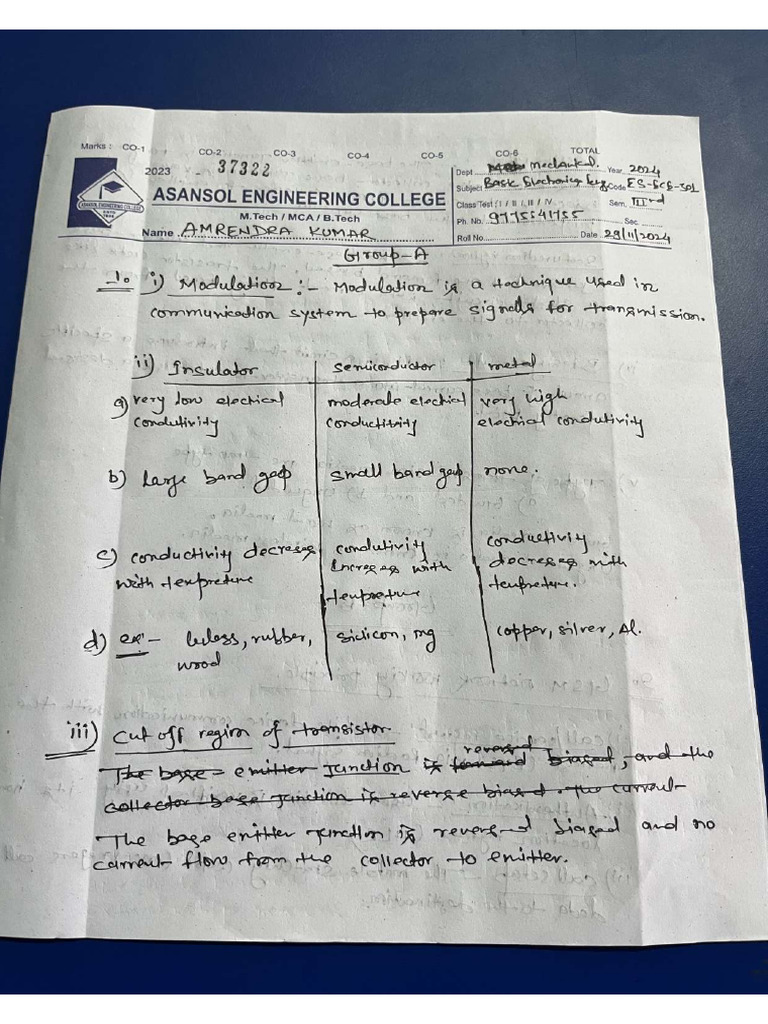 Marks : CO-1 CO-2 CO-3 CO-4 CO-5 CO-6 TOTAL
2023 37322
Dept. Mechanical. Year 2024
ASANSOL ENGINEERING COLLEGE
Subject Basic Electronics Code ES-ECE-301
M.Tech / MCA / B.Tech
Class Test : I / II / III / IV Sem. IIIrd
Name AMRENDRA KUMAR
Ph No. 9775541755 Sec
Roll No. Date 29/11/2024
Group-A
1. i) Modulation :- Modulation is a technique used in
communication system to prepare signals for transmission.
ii) Insulator semiconductor metal
a) very low electical moderate electrical very high
condutivity conductitvity electrial condutivity
b) Large band gap small band gap none.
c) conductivity decreses condutivity conductivity
with tempreture Increses with decreses with
tempreture tempreture.
d) ex - rubber, silicon, mg copper, silver, Al.
wood
iii) cut off region of transistor
The base - emitter Junction is forward reversed biased, and the
collector base Junction is reverse biased. the current
The base emitter Junction is reversed biased and no
current flow from the collector to emitter.